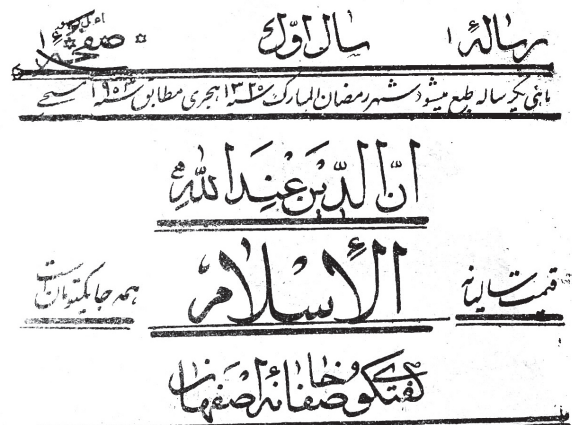 رسالهٔ ۱ سال اوّل صفحهٔ ۱
ماهی یکرساله طبع میشود شهر رمضان المبارک سنه ۱۳۲۰ هجری مطابق سنه ۱۹۰۲ مسیحی
انّ الدّین عِندَ الله
قیمت سالیانه الإسلام همه جا یکتومان است
گفتگوی صفاخانه اصفهان